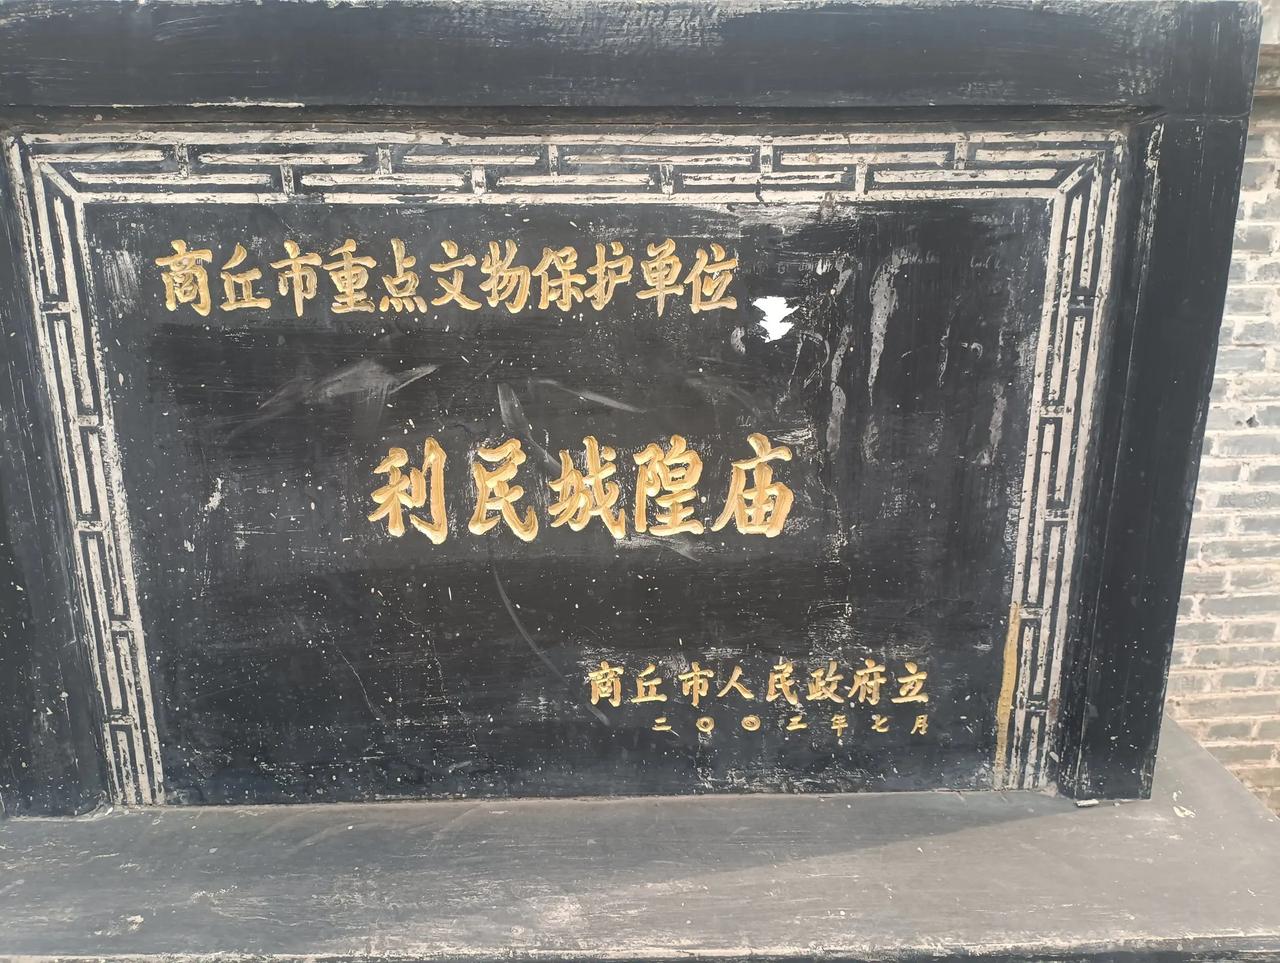 商丘市重点文物保护单位
利民城隍庙
商丘市人民政府立
二〇〇二年七月